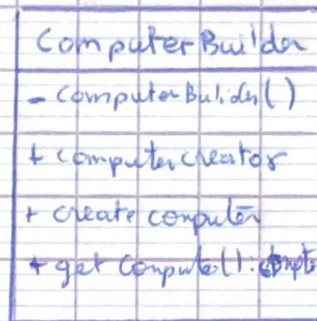 ComputerBuilder
- ComputerBuilder()
+ computercreator
+ create computer
+ get Computer():